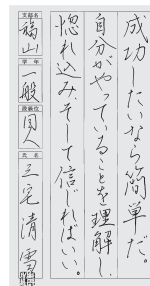 成功したいなら簡単だ。
自分がやっていることを理解し、
惚れ込み、そして信じればいい。
支部名 福山
学年 一般
段級位 同人
氏名 三宅清雪